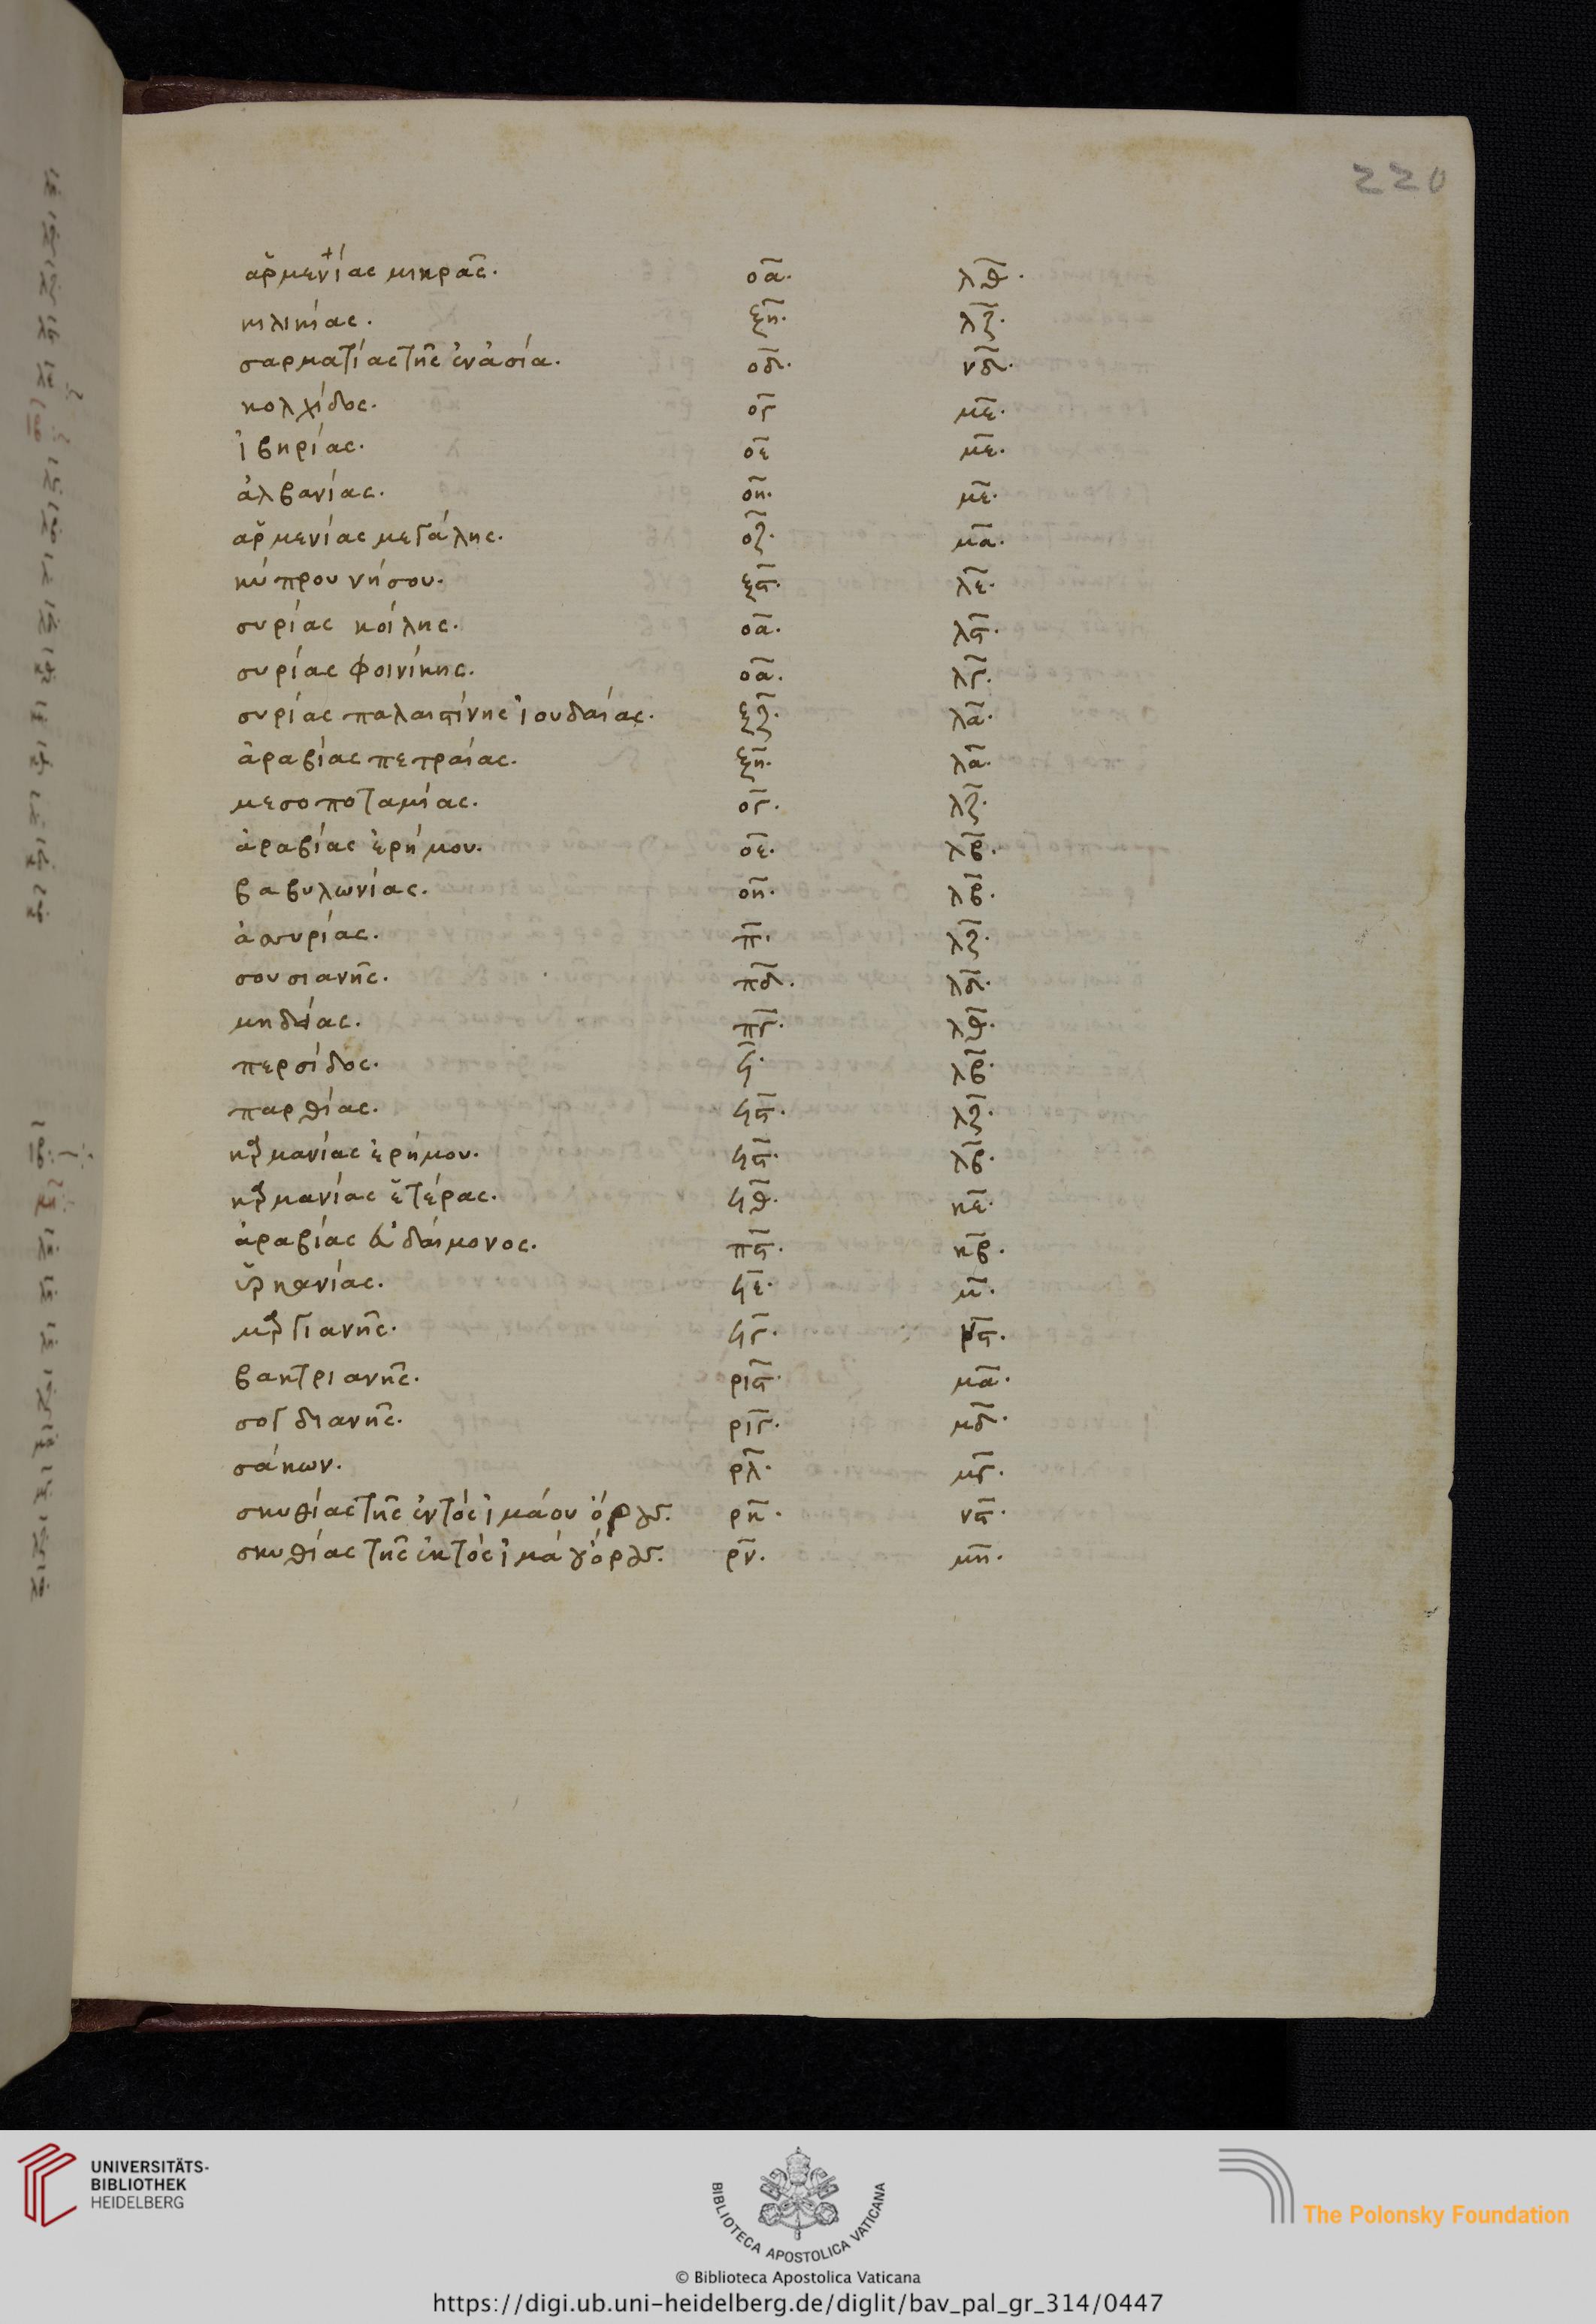 220
ἀρμενίας μικρᾶς. οα. λθ.
κιλικίας. ξη. λζ.
σαρματίας τῆς ἐν ἀσία. οδ. νδ.
κολχίδος. ογ με.
ἰβηρίας. οε με.
ἀλβανίας. οη. με.
ἀρμενίας μεγάλης. οζ. μα.
κύπρου νήσου. ξϛ. λε.
συρίας κοίλης. οα. λϛ.
συρίας φοινίκης. οα. λγ.
συρίας παλαιστίνης ἰουδαίας. ξζ. λα.
ἀραβίας πετραίας. ξη. λα.
μεσοποταμίας. ογ. λζ.
ἀραβίας ἐρήμου. οε. λβ.
βαβυλωνίας. οη. λβ.
ἀσσυρίας. π. λζ.
σουσιανῆς. πδ. λδ.
μηδίας. πγ. λθ.
περσίδος. ϟ. λβ.
παρθίας. ϟϛ. λζ.
καρμανίας ἐρήμου. ϟϛ. λβ.
καρμανίας ἑτέρας. ϟθ. κε.
ἀραβίας εὐδαίμονος. πϛ. κβ.
ὑρκανίας. ϟε. μ.
μαργιανῆς. ϟγ. νϛ.
βακτριανῆς. ριϛ. μα.
σογδιανῆς. ριγ. μδ.
σάκων. ρλ. μγ.
σκυθίας τῆς ἐντὸς ἰμάου ὄρους. ρκ. νϛ.
σκυθίας τῆς ἐκτὸς ἰμάου ὄρους. ρν. μη.
UNIVERSITÄTS-
BIBLIOTHEK
HEIDELBERG
BIBLIOTECA APOSTOLICA VATICANA
The Polonsky Foundation
© Biblioteca Apostolica Vaticana
https://digi.ub.uni-heidelberg.de/diglit/bav_pal_gr_314/0447